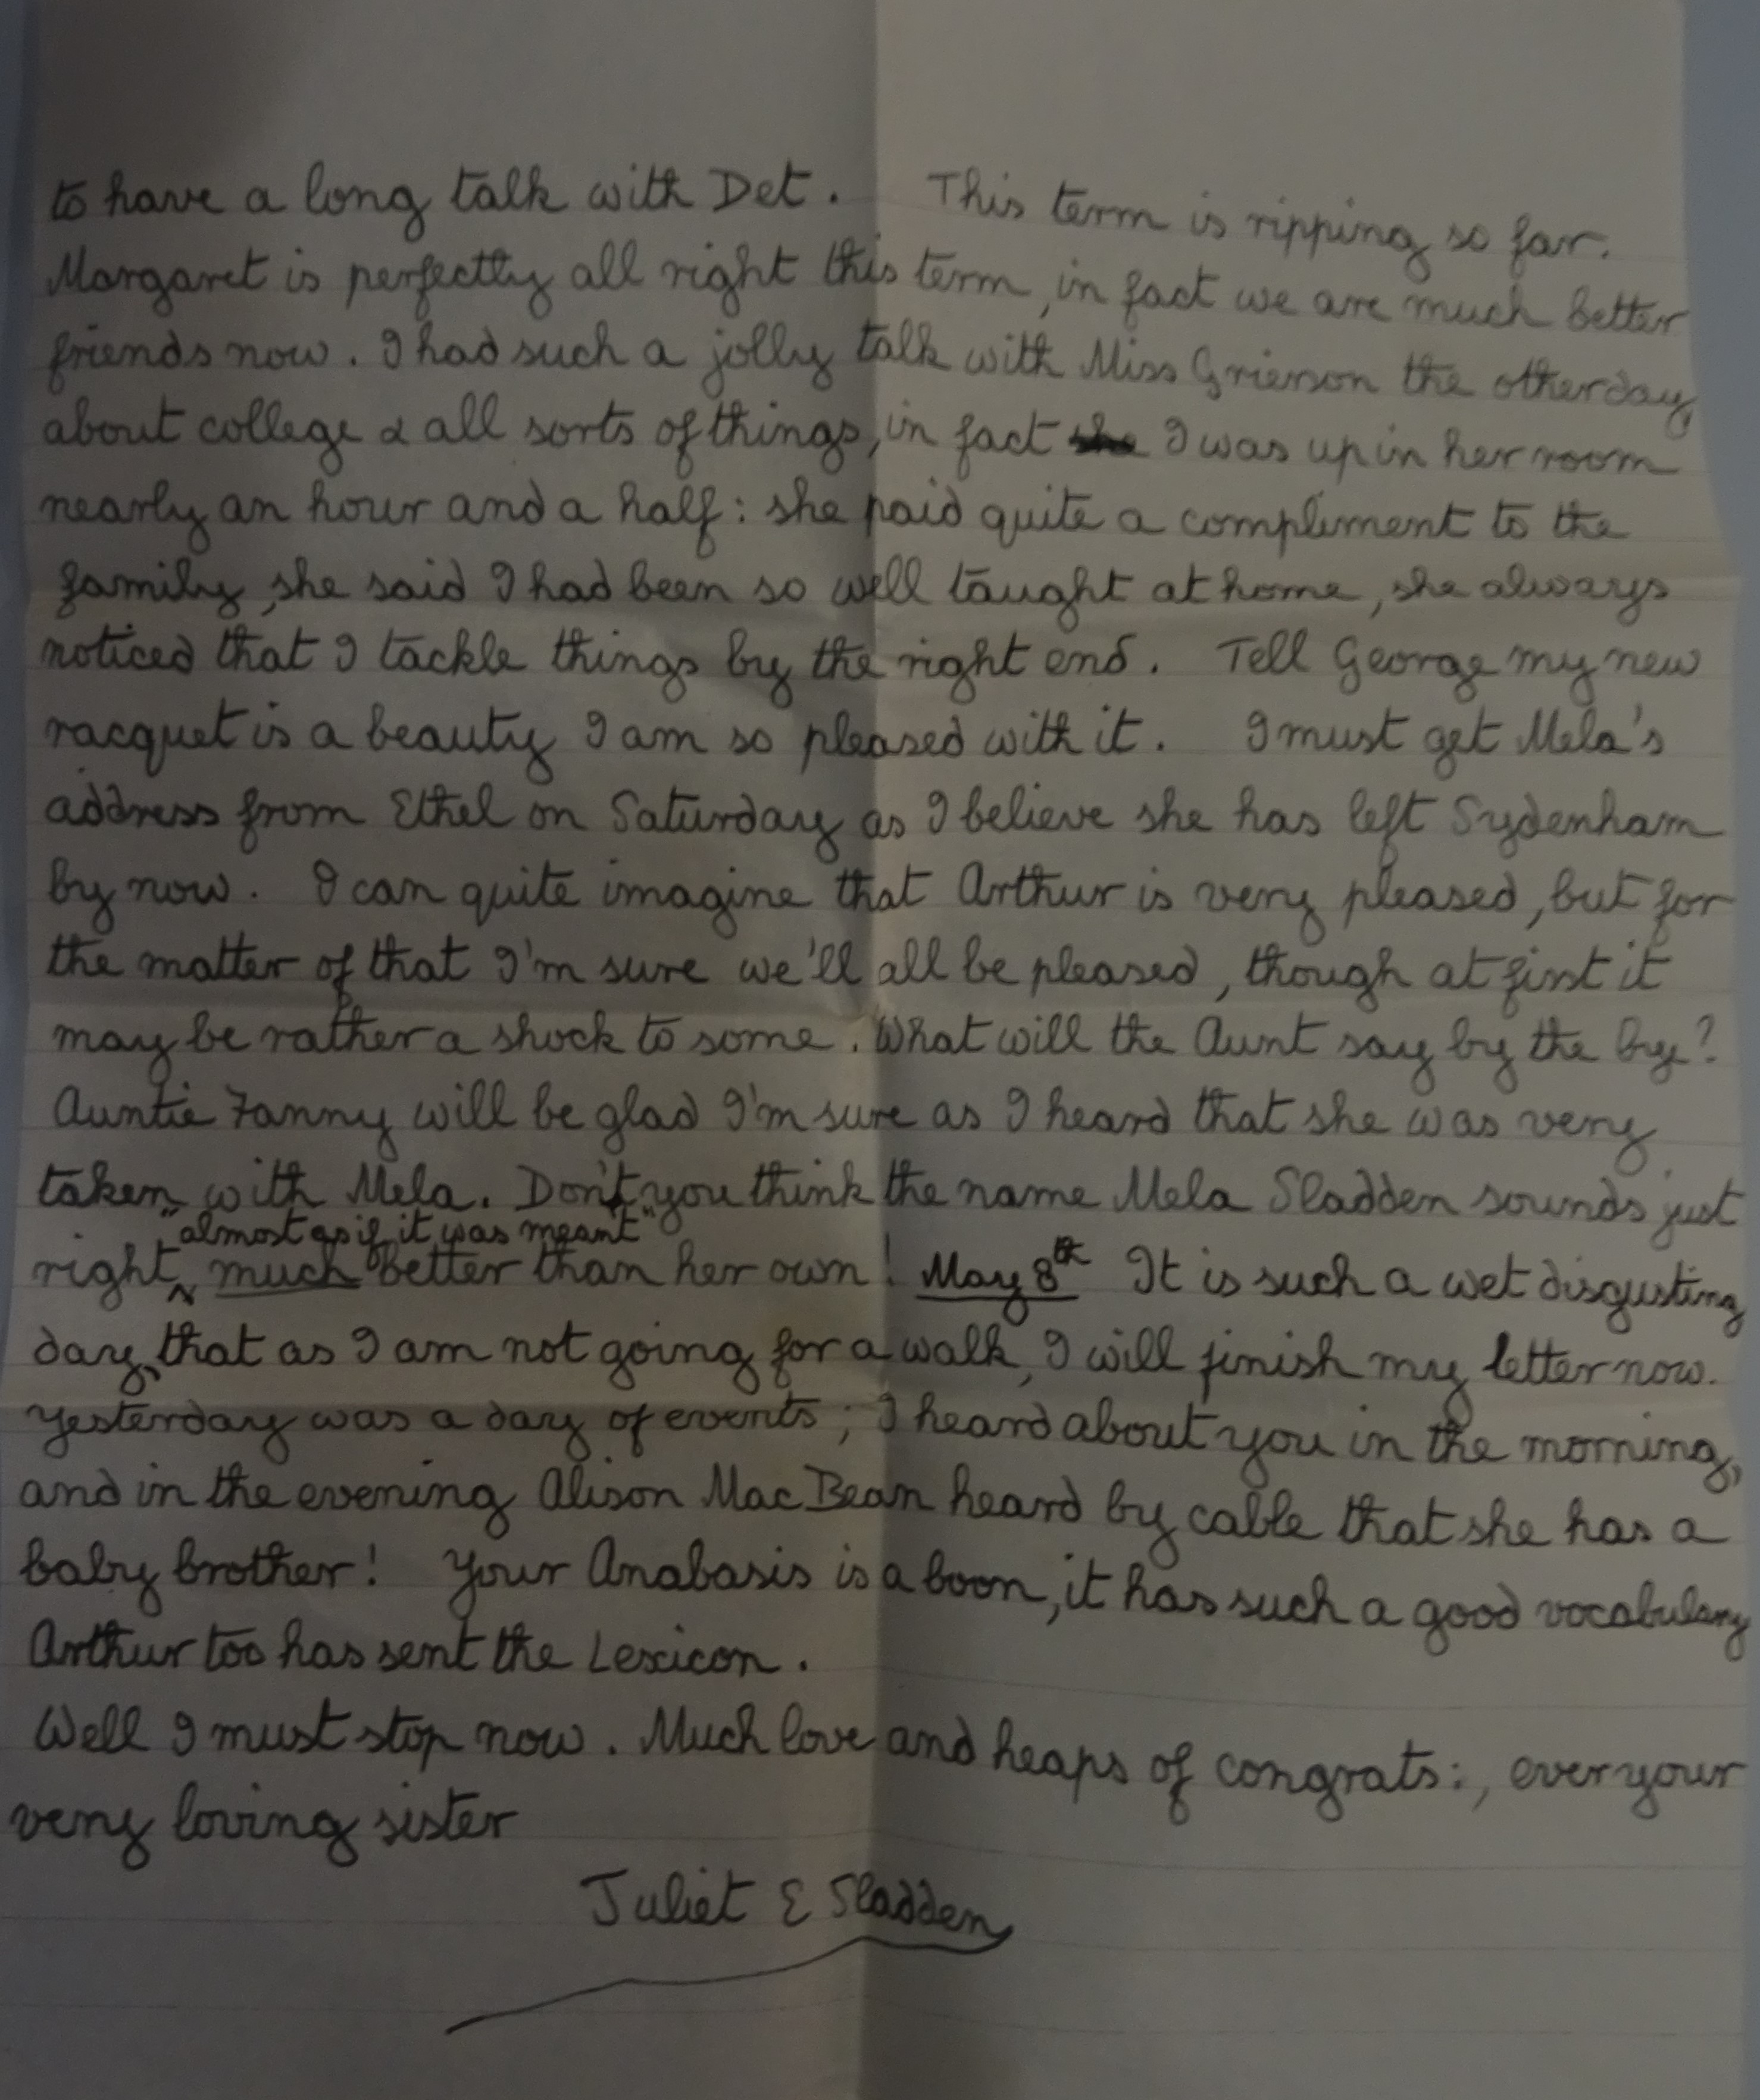 to have a long talk with Det. This term is ripping so far.
Margaret is perfectly all right this term, in fact we are much better
friends now. I had such a jolly talk with Miss Grierson the other day,
about college & all sorts of things, in fact she I was up in her room
nearly an hour and a half: she paid quite a compliment to the
family, she said I had been so well taught at home, she always
noticed that I tackle things by the right end. Tell George my new
racquet is a beauty I am so pleased with it. I must get Mela's
address from Ethel on Saturday as I believe she has left Sydenham
by now. I can quite imagine that Arthur is very pleased, but for
the matter of that I'm sure we'll all be pleased, though at first it
may be rather a shock to some. What will the Aunt say by the by?
Auntie Fanny will be glad I'm sure as I heard that she was very
taken with Mela. Don't you think the name Mela Sladden sounds just
"almost as if it was meant"
right, much better than her own! May 8th It is such a wet disgusting
day, that as I am not going for a walk, I will finish my letter now.
Yesterday was a day of events; I heard about you in the morning,
and in the evening Alison MacBean heard by cable that she has a
baby brother! Your Anabasis is a boon, it has such a good vocabulary
Arthur too has sent the Lexicon.
Well I must stop now. Much love and heaps of congrats:, ever your
very loving sister
Juliet E Sladden